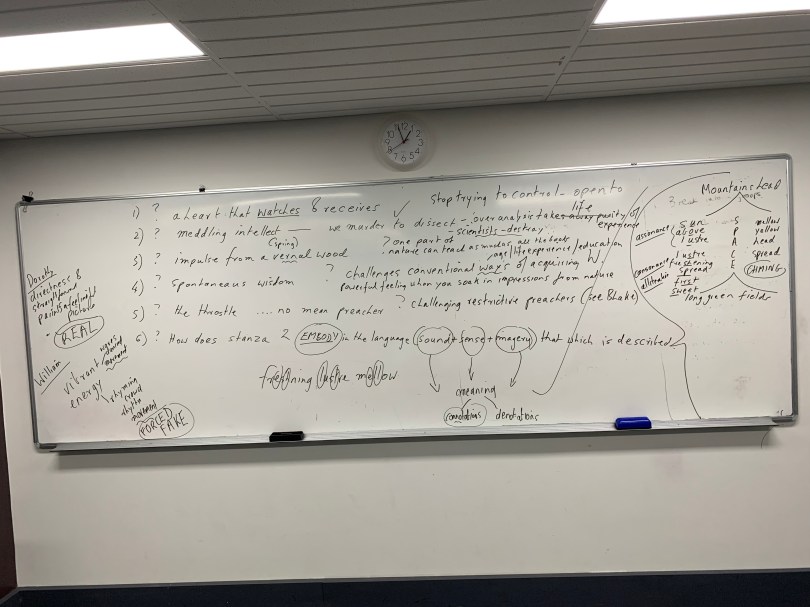 1) ? a heart that watches & receives ✓ stop trying to control - open to life
2) ? meddling intellect — we murder to dissect - over analysis takes away purity of experience
? one part of - scientists - destroy
3) ? impulse from a vernal wood
(spring)
nature can teach as much as all the
age/life experience/education
4) ? spontaneous wisdom ? challenges conventional ways of acquiring W.
powerful feeling when you soak in impressions from nature
5) ? the throstle .... no mean preacher ? challenging restrictive preachers (see Blake)
6) ? How does stanza 2 EMBODY in the language (sound + sense + imagery) that which is described
freshening lustre mellow
meaning
connotations denotations
Doroth
directness &
straightforward
paints a
REAL
William
vibrant
energy
movement
rhyming
movement
FORCED
FAKE
Mountains head
assonance
sun
above
lustre
consonance
alliteration
lustre
freshening
spread
first
sweet
S
P
A
C
E
mellow
yellow
head
spread
CHIMING
long green fields